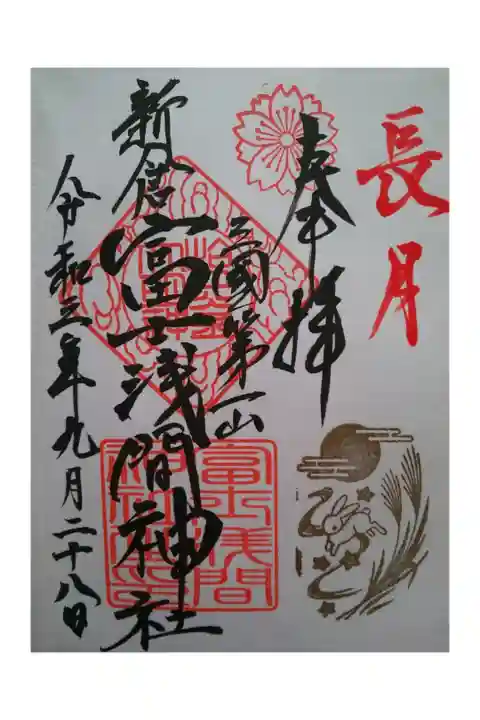 長月
奉拝
三國第一山
新倉富士浅間神社
令和三年九月二十八日
富士浅間
神社